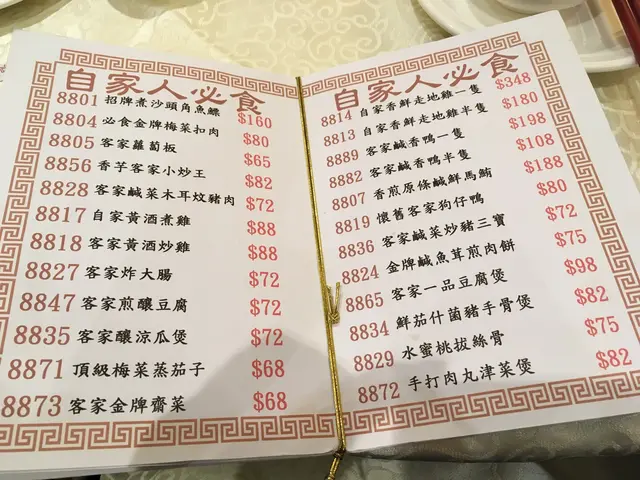 自家人必食
8801 招牌煮沙頭角魚鰾 $160
8804 必食金牌梅菜扣肉 $80
8805 客家蘿蔔板 $65
8856 香芋客家小炒王 $82
8828 客家鹹菜木耳炆豬肉 $72
8817 自家黃酒煮雞 $88
8818 客家黃酒炒雞 $88
8827 客家炸大腸 $72
8847 客家煎釀豆腐 $72
8835 客家釀涼瓜煲 $72
8871 頂級梅菜蒸茄子 $68
8873 客家金牌齋菜 $68
自家人必食
8814 自家香鮮走地雞一隻 $348
8813 自家香鮮走地雞半隻 $180
8889 客家鹹香鴨一隻 $198
8882 客家鹹香鴨半隻 $108
8807 香煎原條鹹鮮馬鮪 $188
8819 懷舊客家狗仔鴨 $80
8836 客家鹹菜炒豬三寶 $72
8824 金牌鹹魚茸煎肉餅 $75
8865 客家一品豆腐煲 $98
8834 鮮茄什菌豬手骨煲 $82
8829 水蜜桃拔絲骨 $75
8872 手打肉丸津菜煲 $82